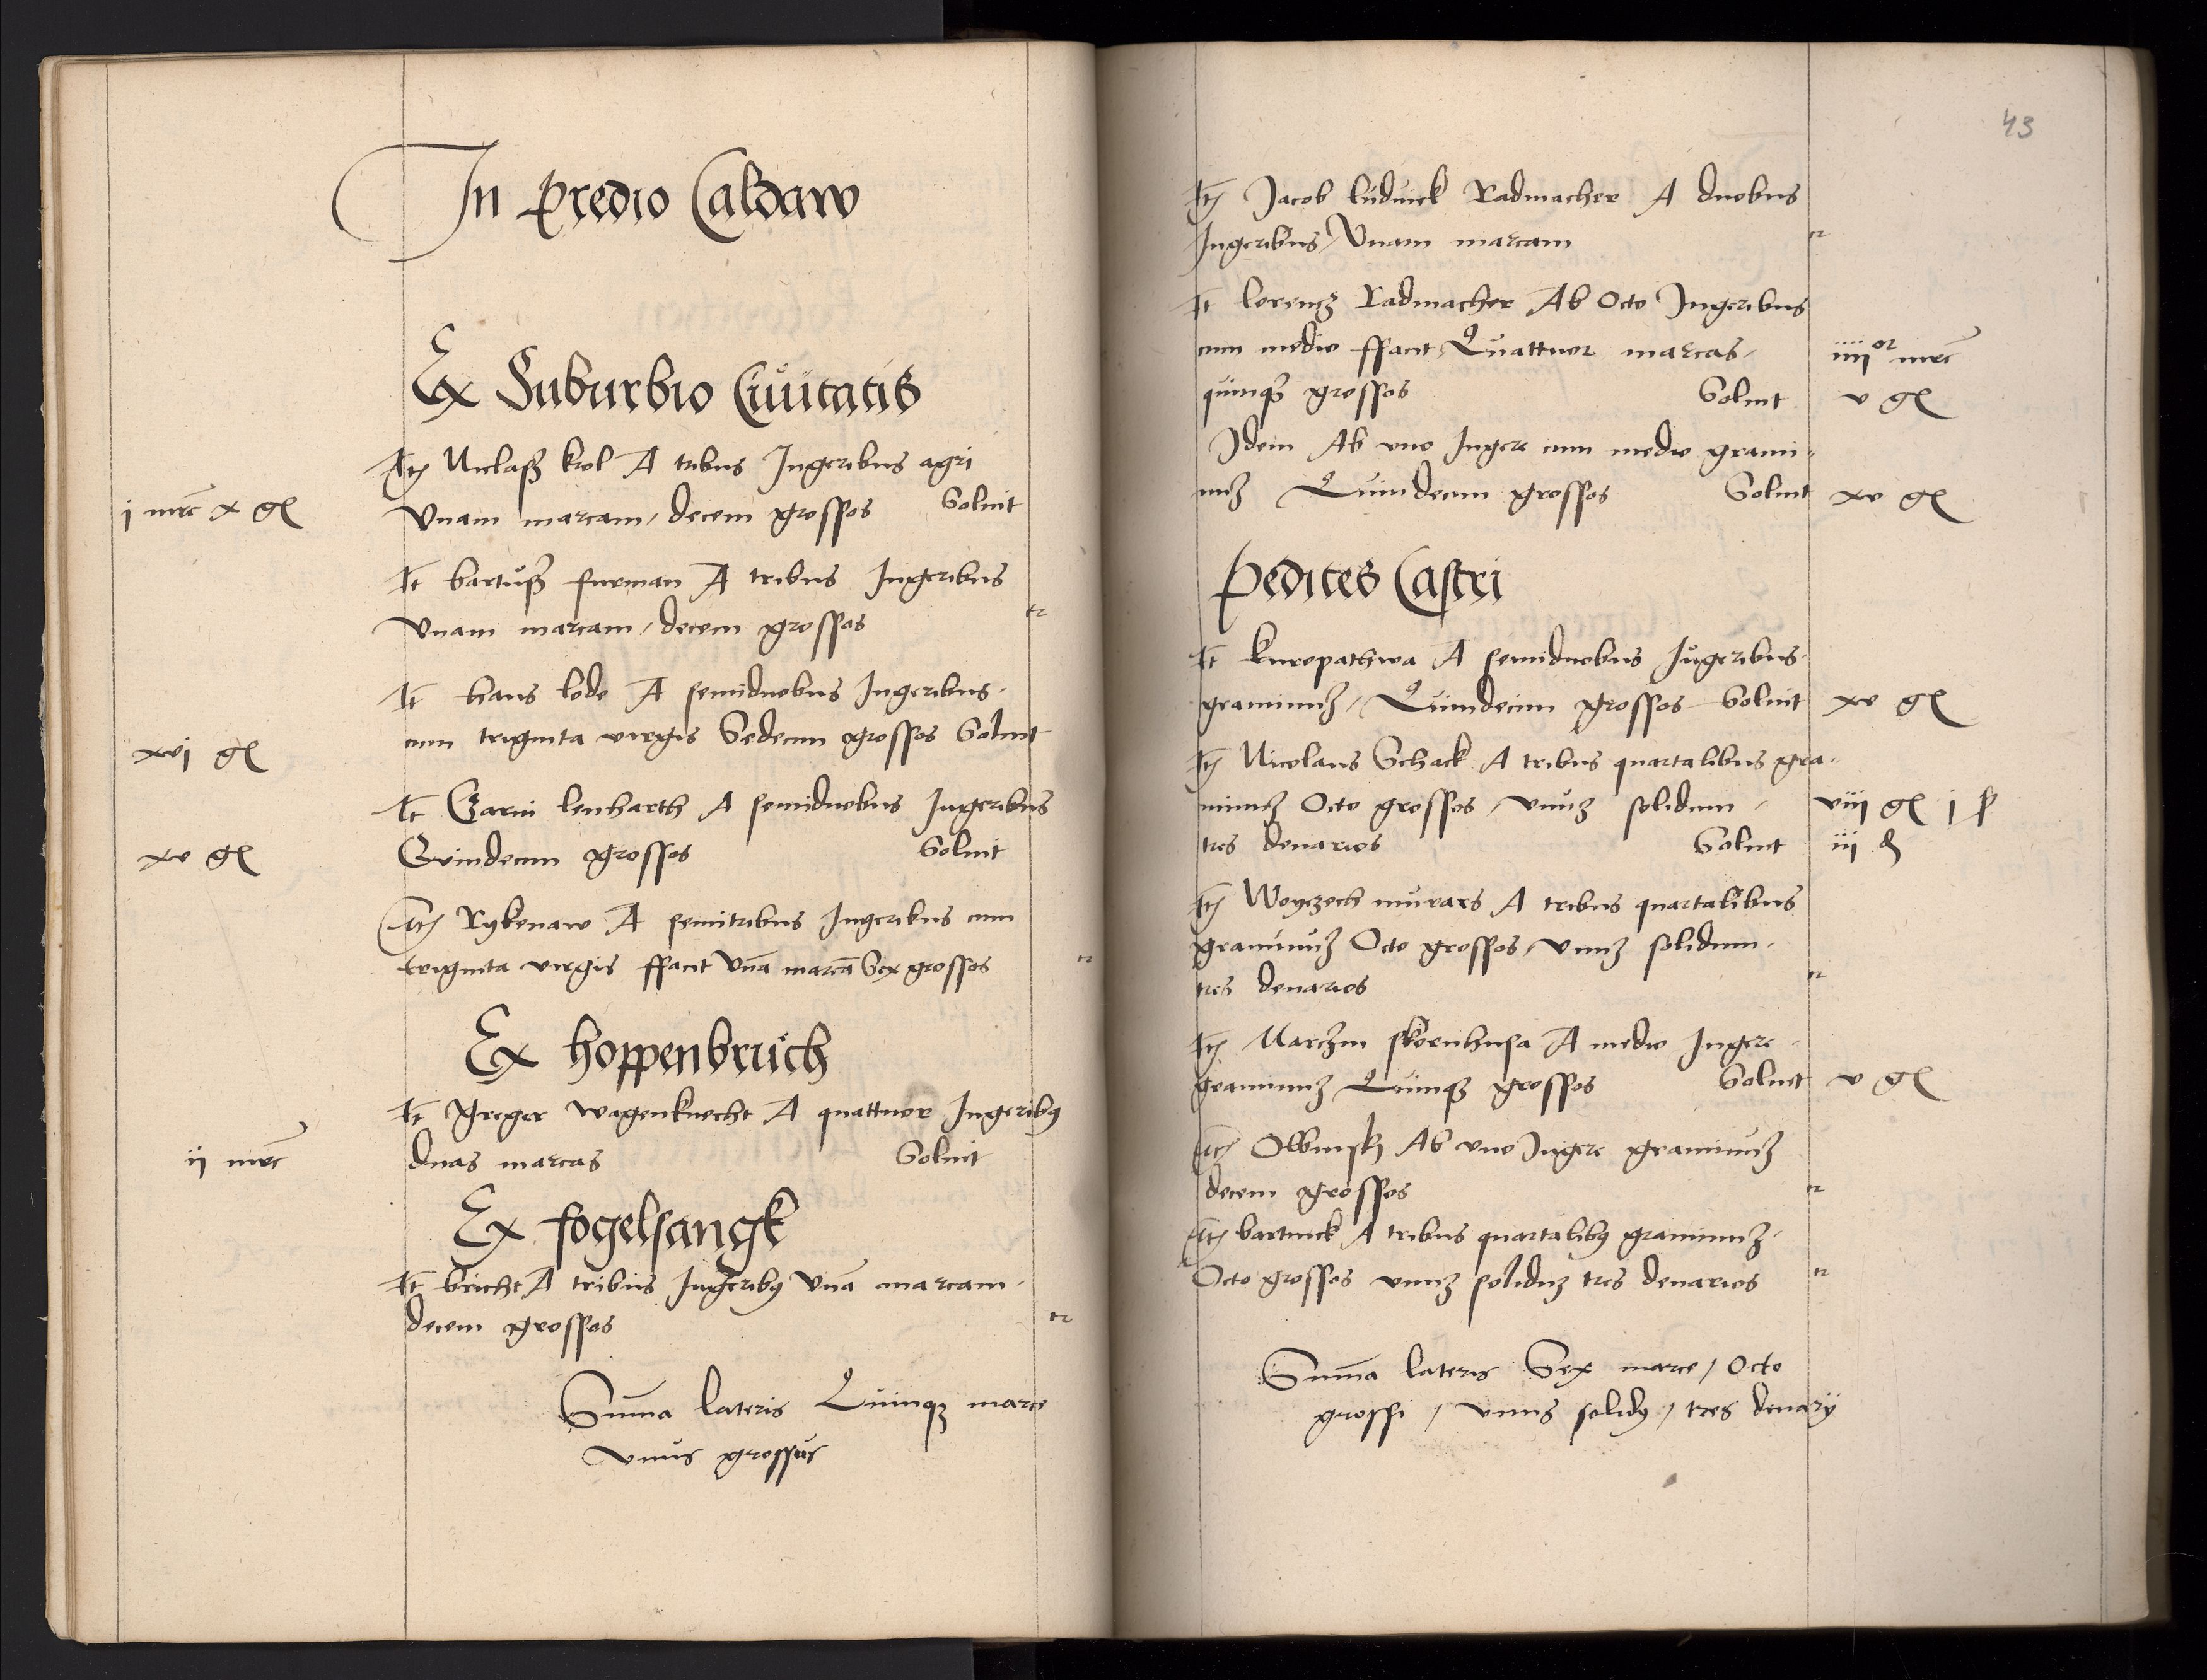 In predio Caldaw
Ex Suburbio Ciuitatis
Itē Niclaß krol A tribus Iugeribus agri
i mrc̄ x gl Vnam marcam / decem grossos Soluit
It̄ bartuß furman A tribus Iugeribus
Vnam marcam / decem grossos tr
It̄ hans lode A semiduobus Iugeribus
xvi gl cum triginta virgis Sedecim grossos Soluit
It̄ Czarni lenharth A semiduobus Iugeribus
xv gl Quindecim grossos Soluit
Itē Rykenaw A semitribus Iugeribus cum
triginta virgis ffacit Vnā marcā Sex grossos tr
Ex hoppenbruch
It̄ Greger wagenknecht A quattuor Iugeribꝰ
ii mrc̄ duas marcas Soluit
Ex fogelsangk
It̄ bricht A tribus Iugeribꝰ Vnā marcam
decem grossos tr
Sum̄a lateris Quinqꝫ marce
vnus grossus
43
Itē Jacob luduick Radmacher A duobus
Iugeribus / Vnam marcam tr
It̄ lorencz Radmacher Ab Octo Iugeribus
cum medio ffacit Quattuor marcas / iiiiᵒʳ mrc̄
quinqꝫ grossos Soluit v gl
Idem Ab vno Iugere cum medio grami-
nuꝫ Quindecim grossos Soluit xv gl
Pedites Castri
It̄ kuropathwa A semiduobus Iugeribus
graminuꝫ / Quindecim grossos Soluit xv gl
Itē Nicolaus Schack A tribus quartalibus gra-
minuꝫ Octo grossos / vnuꝫ solidum / viii gl i ß
tres denarios Soluit iii ₰
Itē Woyczech murars A tribus quartalibus
graminuꝫ Octo grossos / vnuꝫ solidum
tres denarios tr
Itē Marczin skornhusa A medio Iugere
graminuꝫ Quinqꝫ grossos Soluit v gl
Itē Olbinskj Ab vno Iugere graminuꝫ
decem grossos tr
Itē bartnick A tribus quartalibꝰ graminuꝫ
Octo grossos vnuꝫ soliduꝫ tres denarios tr
Sum̄a lateris Sex marce / Octo
grossi / vnus solidꝰ / tres denarij